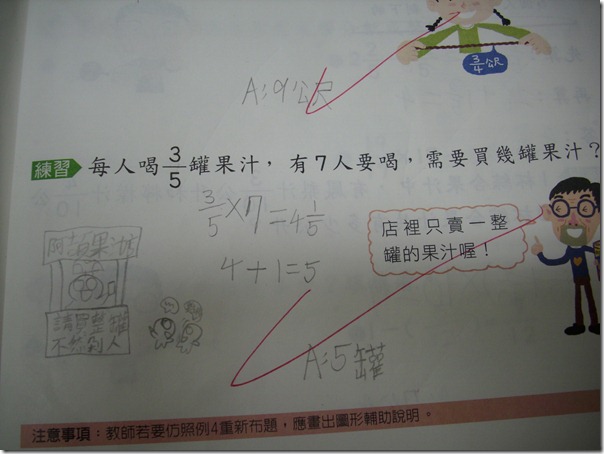 3/4公尺
A:9公尺
練習 每人喝3/5罐果汁，有7人要喝，需要買幾罐果汁？
3/5×7=4 1/5
4+1=5
店裡只賣一整
罐的果汁喔！
請買整罐
不然剁人
A:5罐
注意事項：教師若要仿照例4重新布題，應畫出圖形輔助說明。